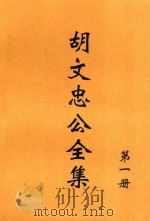 胡文忠公全集
第一册